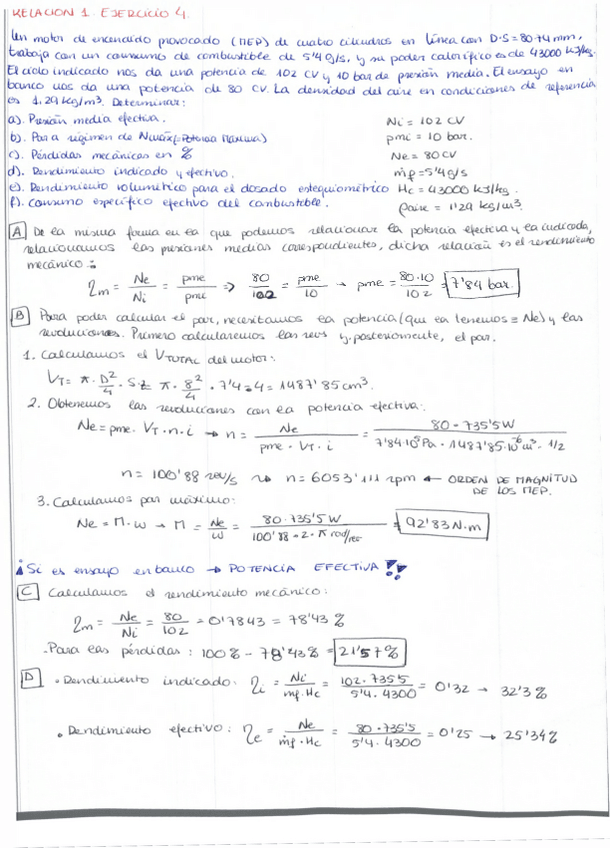 RELACIÓN 1. EJERCICIO 4.
Un motor de encendido provocado (MEP) de cuatro cilindros en línea con D·S=80·74 mm,
trabaja con un consumo de combustible de 5'4 g/s, y su poder calorífico es de 43000 KJ/kg.
El ciclo indicado nos da una potencia de 102 CV y 10 bar de presión media. El ensayo en
banco nos da una potencia de 80 CV. La densidad del aire en condiciones de referencia
es 1,29 kg/m³. Determinar:
a). Presión media efectiva.
Ni = 102 CV
b). Par a régimen de Nmáx (Potencia Máxima)
pmi = 10 bar.
c). Pérdidas mecánicas en %
Ne = 80 CV
d). Rendimiento indicado y efectivo.
ṁf = 5'4 g/s
e). Rendimiento volumétrico para el dosado estequiométrico
Hc = 43000 kJ/kg.
f). Consumo específico efectivo del combustible.
ρaire = 1'29 kg/m³.
A De la misma forma en la que podemos relacionar la potencia efectiva y la indicada,
relacionamos las presiones medias correspondientes, dicha relación es el rendimiento
mecánico:
ηm = Ne/Ni = pme/pmi => 80/102 = pme/10 → pme = 80·10/102 = 7'84 bar.
B Para poder calcular el par, necesitamos la potencia (que la tenemos = Ne) y las
revoluciones. Primero calcularemos las revs y posteriormente, el par.
1. Calculamos el VTOTAL del motor:
VT = π · D²/4 · S · z = π · 8²/4 · 7'4 · 4 = 1487'85 cm³.
2. Obtenemos las revoluciones con la potencia efectiva:
Ne = pme · VT · n · i → n = Ne/(pme · VT · i) = 80 · 735'5 W/(7'84·10⁵ Pa · 1487'85·10⁻⁶ m³ · 1/2)
n = 100'88 rev/s ⇝ n = 6053'111 rpm ← ORDEN DE MAGNITUD
DE LOS MEP.
3. Calculamos par máximo:
Ne = M · ω → M = Ne/ω = 80 · 735'5 W/(100'88 · 2 · π rad/rev) = 92'83 N·m
¡Si es ensayo en banco → POTENCIA EFECTIVA!!
C Calculamos el rendimiento mecánico:
ηm = Ne/Ni = 80/102 = 0'7843 = 78'43 %
-Para las pérdidas: 100% - 78'43% = 21'57%
D • Rendimiento indicado: ηi = Ni/(ṁf · Hc) = 102 · 735'5/(5'4 · 4300) = 0'32 → 32'3 %
• Rendimiento efectivo: ηe = Ne/(ṁf · Hc) = 80 · 735'5/(5'4 · 4300) = 0'25 → 25'34%